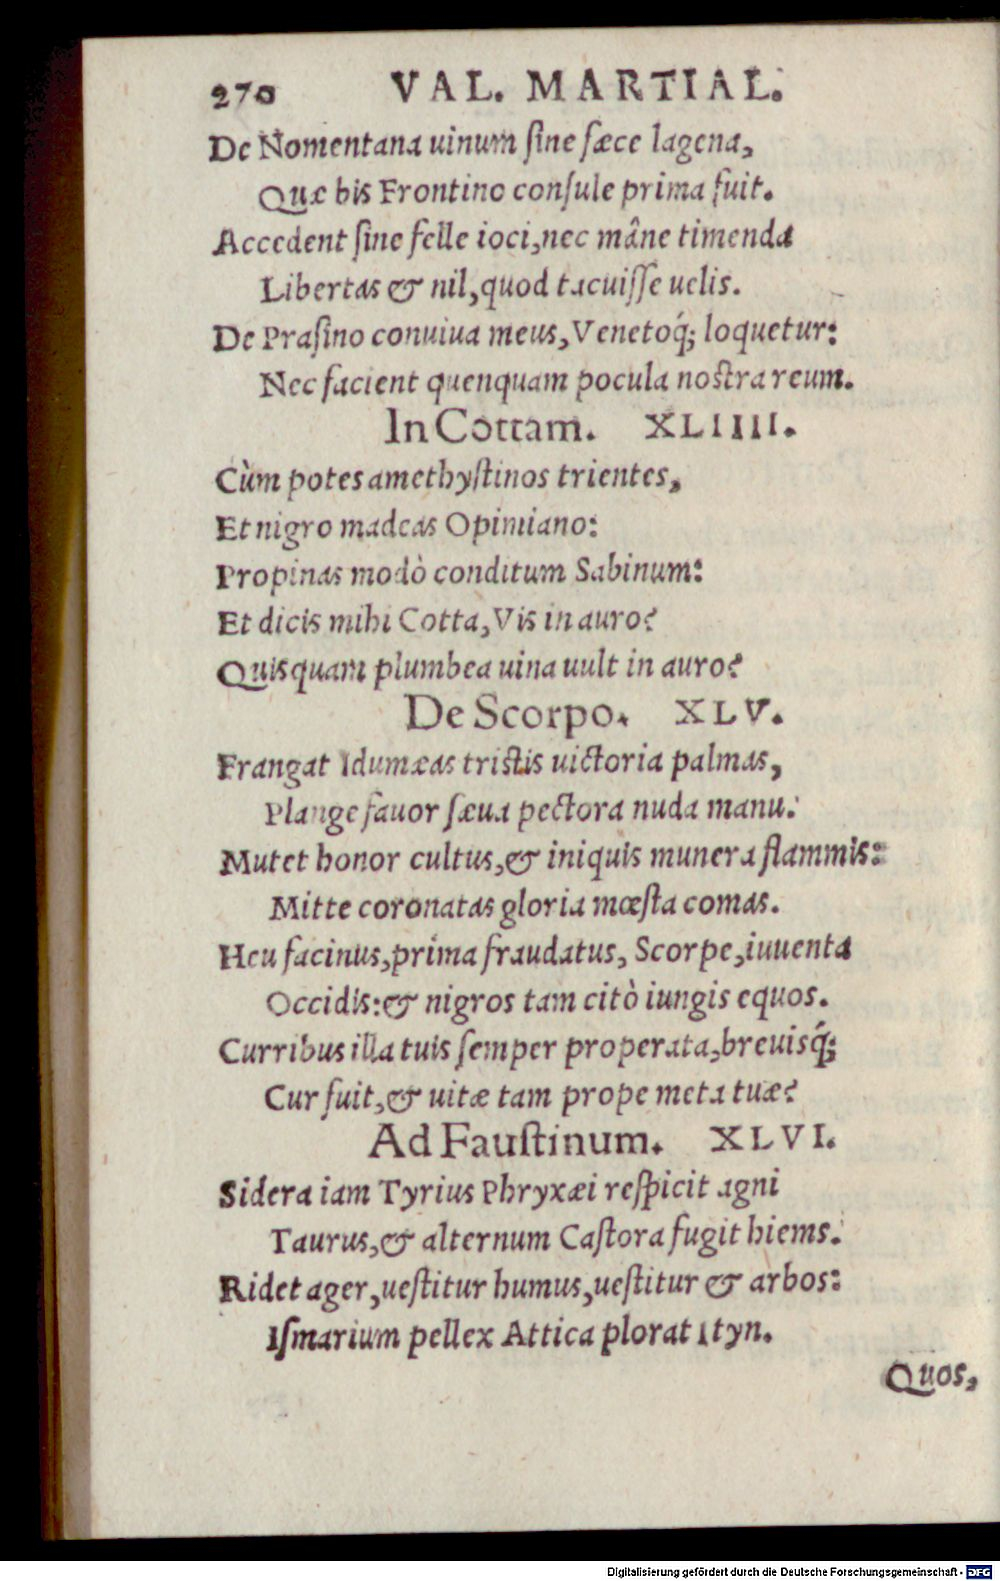 270 VAL. MARTIAL.
De Nomentana uinum ſine fæce lagena,
Quæ bis Frontino conſule prima fuit.
Accedent ſine felle ioci,nec mâne timenda
Libertas & nil,quod tacuiſſe uelis.
De Praſino conuiua meus,Venetoq́; loquetur:
Nec facient quenquam pocula noſtra reum.
In Cottam. XLIIII.
Cùm potes amethyſtinos trientes,
Et nigro madeas Opimiano:
Propinas modò conditum Sabinum:
Et dicis mihi Cotta,Vis in auro?
Quisquam plumbea uina uult in auro?
De Scorpo. XLV.
Frangat Idumæas triſtis uictoria palmas,
Plange fauor ſæua pectora nuda manu.
Mutet honor cultus,& iniquis munera flammis:
Mitte coronatas gloria mœſta comas.
Heu facinus,prima fraudatus, Scorpe,iuuenta
Occidis:& nigros tam citò iungis equos.
Curribus illa tuis ſemper properata,breuisq́;
Cur fuit,& uitæ tam prope meta tuæ?
Ad Fauſtinum. XLVI.
Sidera iam Tyrius Phryxæi reſpicit agni
Taurus,& alternum Caſtora fugit hiems.
Ridet ager,ueſtitur humus,ueſtitur & arbos:
Iſmarium pellex Attica plorat Ityn.
Quos,
Digitalisierung gefördert durch die Deutsche Forschungsgemeinschaft - DFG